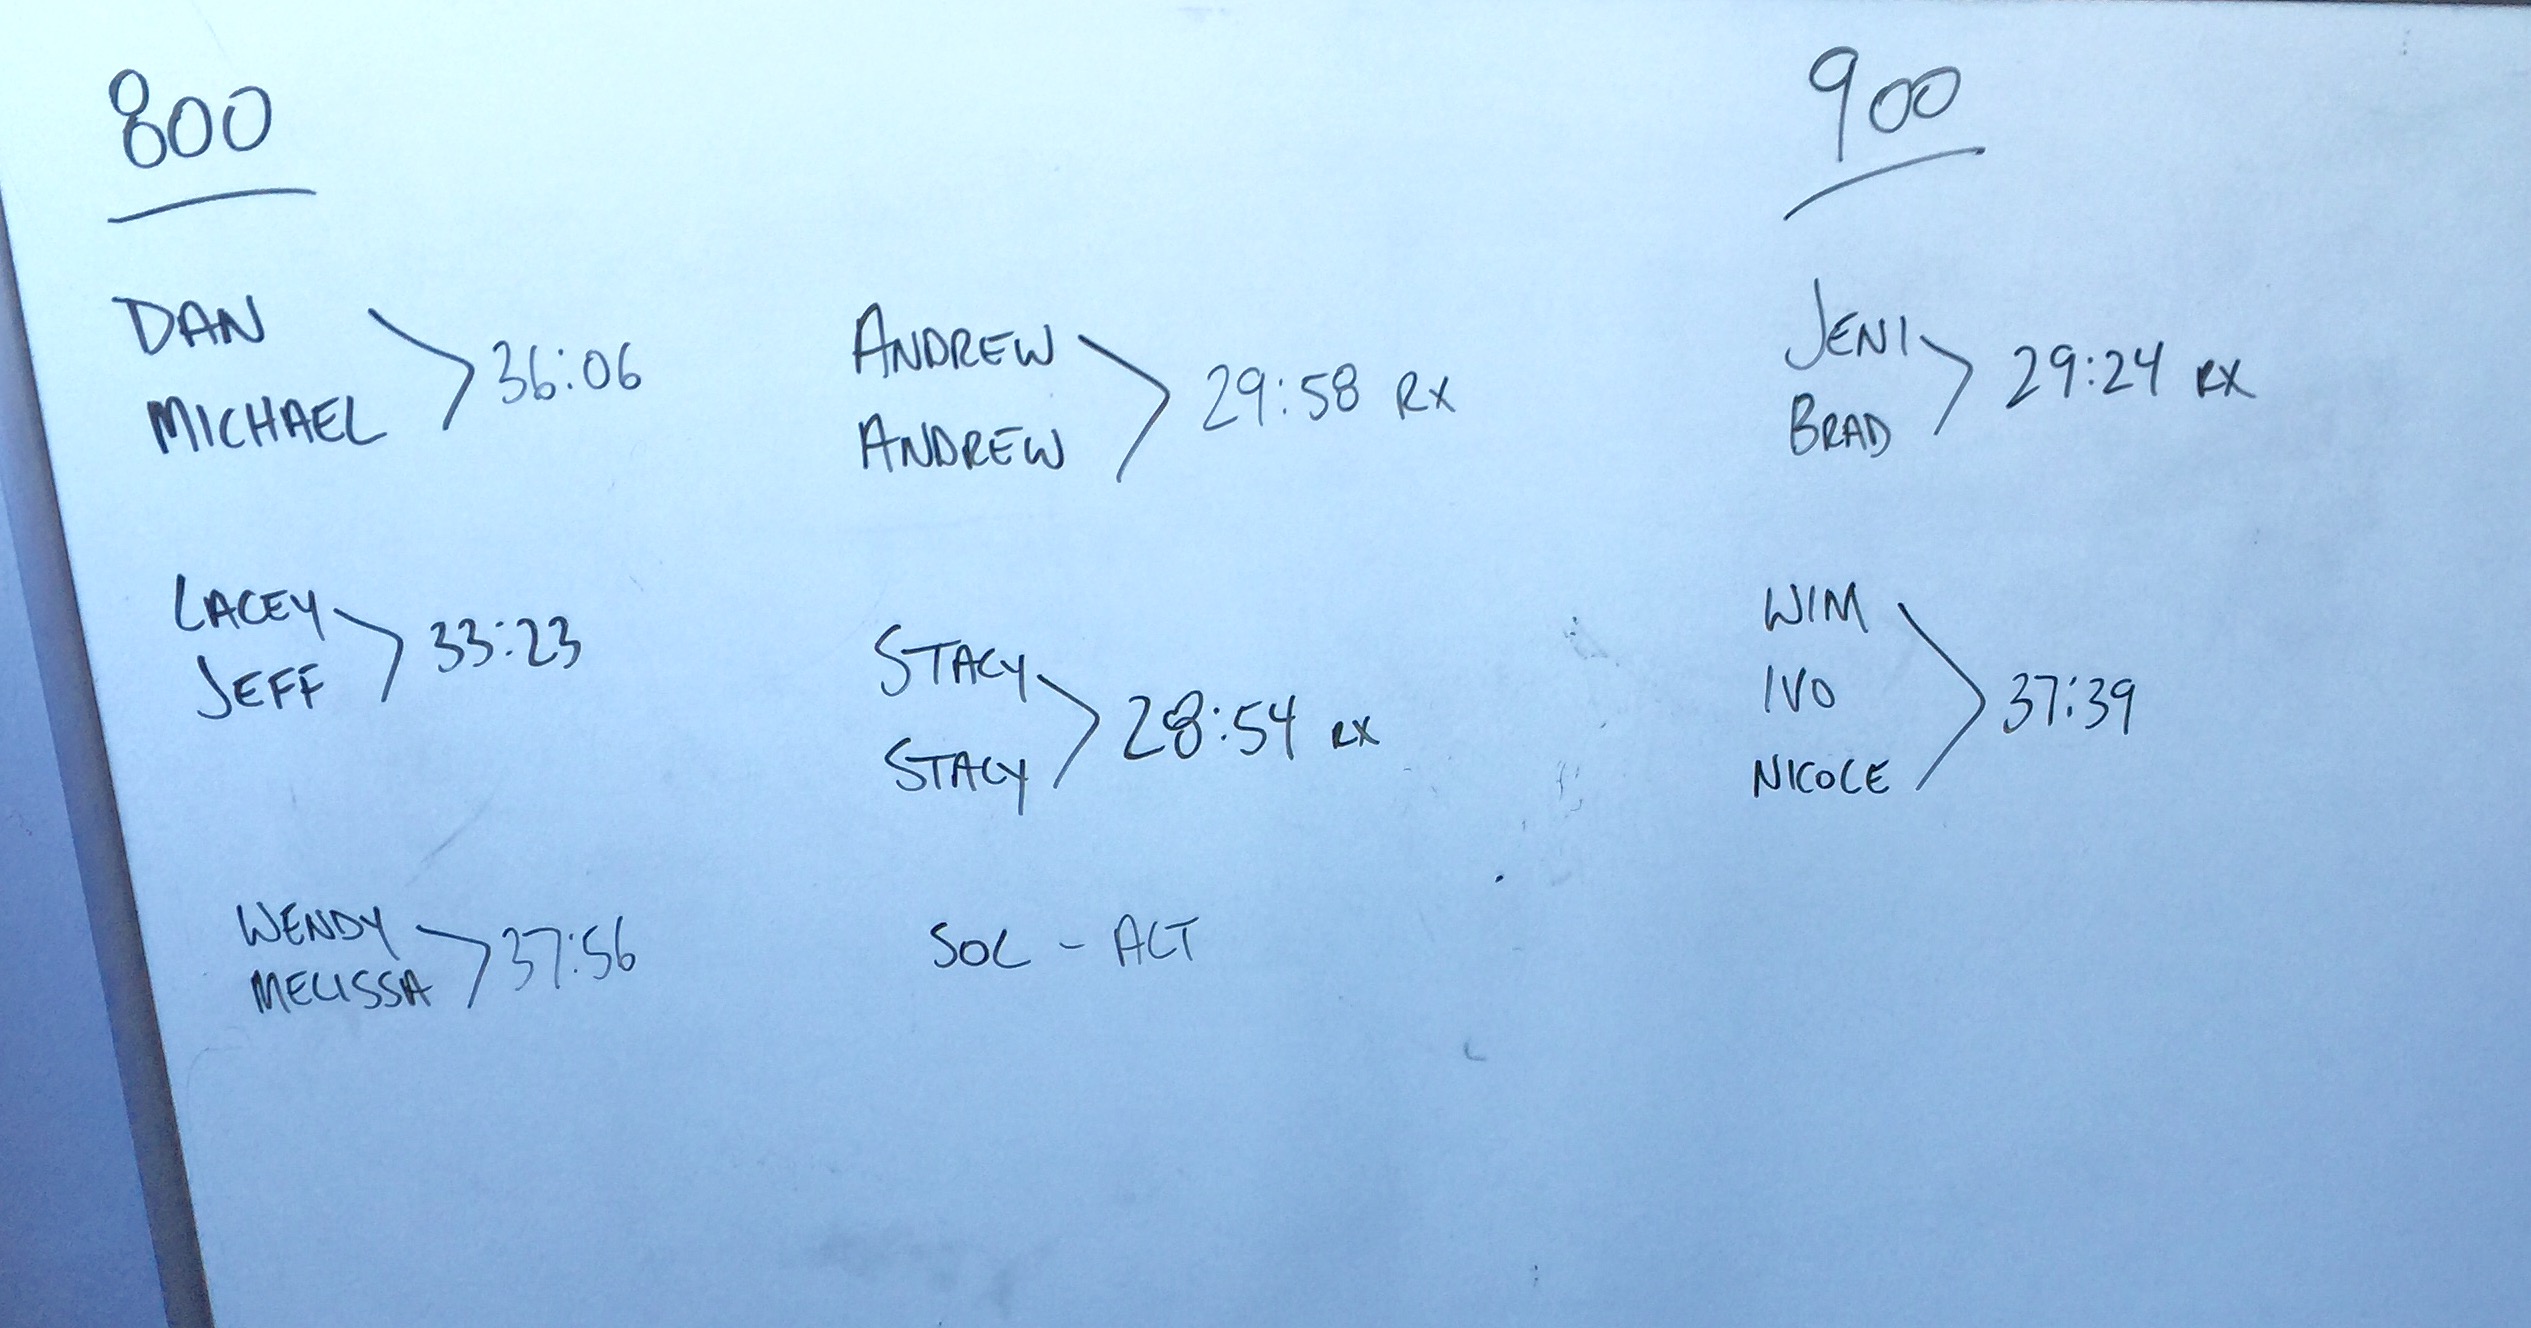 800
DAN
MICHAEL
36:06
LACEY
JEFF
33:23
WENDY
MELISSA
37:56
ANDREW
ANDREW
29:58 RX
STACY
STACY
28:54 RX
SOL - ALT
900
JENI
BRAD
29:24 RX
WIM
IVO
NICOLE
37:39